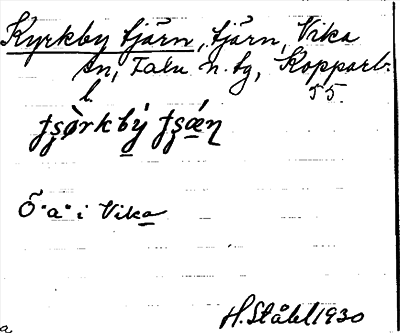 Kyrkby tjärn, tjärn, Vika
sn, Falu n. bg, Kopparb.
l. 55.
ʈʂø̀rkbý ʈʂǽɳ
Ö "a" i Vika
H. Ståhl 1930
a